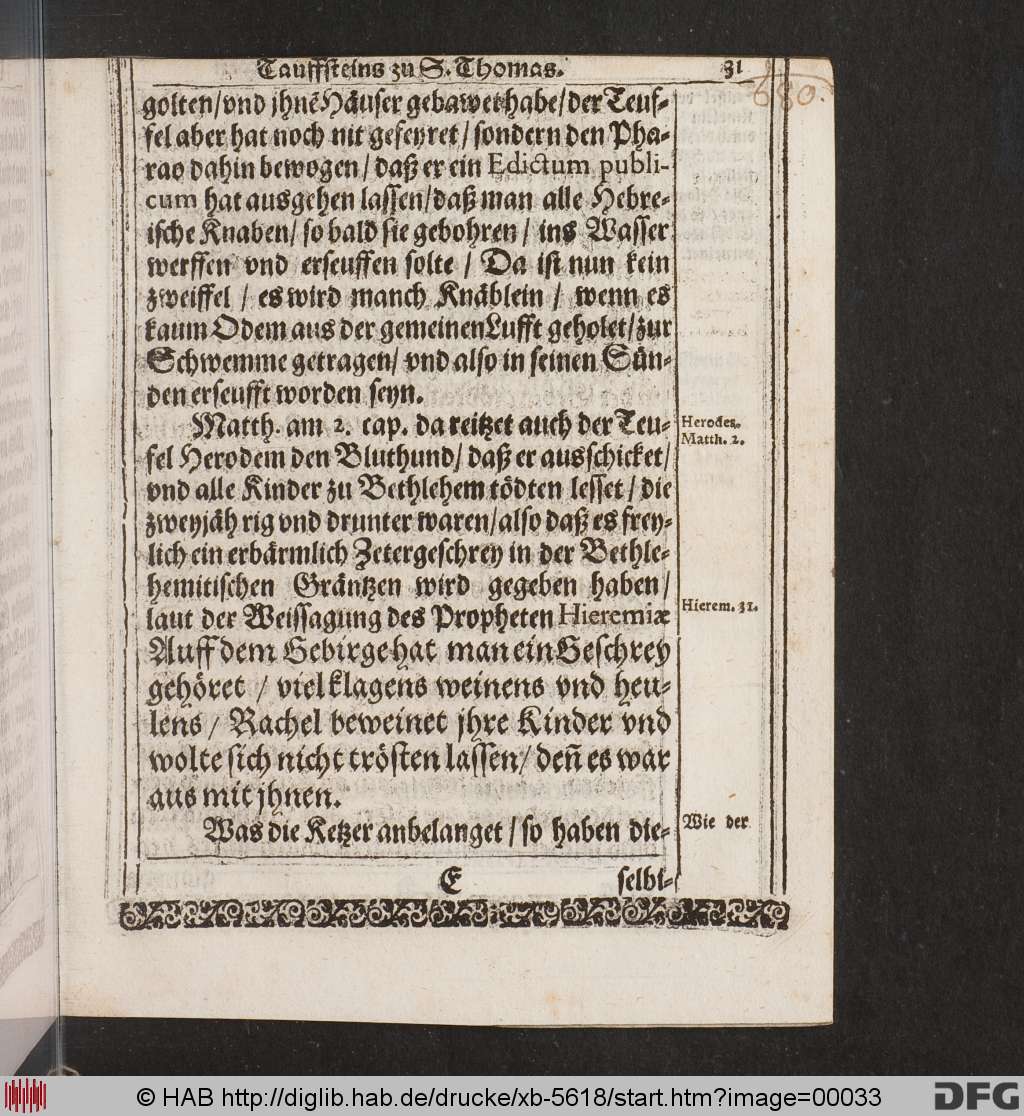 Tauffsteins zu S. Thomas. 31
680.
golten/vnd jhnē Häuser gebawet habe/der Teuf-
fel aber hat noch nit gefeyret/sondern den Pha-
rao dahin bewogen/daß er ein Edictum publi-
cum hat ausgehen lassen/daß man alle Hebre-
ische Knaben/so bald sie gebohren/ins Wasser
werffen vnd erseuffen solte/Da ist nun kein
zweiffel/es wird manch Knäblein/wenn es
kaum Odem aus der gemeinen Lufft geholet/zur
Schwemme getragen/vnd also in seinen Sün-
den erseufft worden seyn.
Matth. am 2. cap. da reitzet auch der Teu-
fel Herodem den Bluthund/daß er ausschicket/
vnd alle Kinder zu Bethlehem tödten lesset/die
zweyjährig vnd drunter waren/also daß es frey-
lich ein erbärmlich Zetergeschrey in der Bethle-
hemitischen Gräntzen wird gegeben haben/
laut der Weissagung des Propheten Hieremiæ
Auff dem Gebirge hat man ein Geschrey
gehöret/viel klagens weinens vnd heu-
lens/Rachel beweinet jhre Kinder vnd
wolte sich nicht trösten lassen/deñ es war
aus mit jhnen.
Was die Ketzer anbelanget/so haben die-
Herodes.
Matth. 2.
Hierem. 31.
Wie der
E selbi-
© HAB http://diglib.hab.de/drucke/xb-5618/start.htm?image=00033
DFG